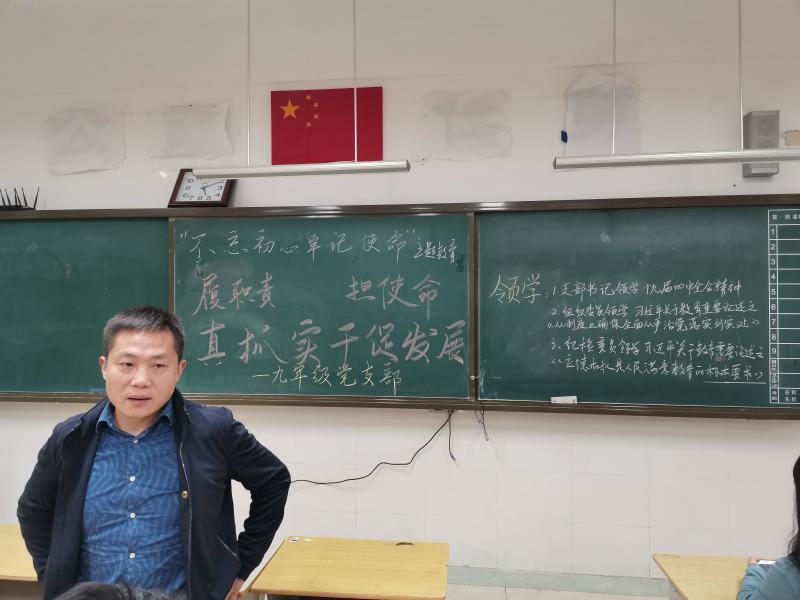 "不忘初心牢记使命"主题教育
履职责 担使命
真抓实干促发展
—九年级党支部
领学:1.支部书记领学十九届四中全会精神
2.组织委员领学习近平关于教育重要论述之
《从制度上确保全面从严治党落实到实处》
3、纪检委员领学习近平关于教育重要论述之
《立德树人是人民满意教育的根本要求》
1
2
3
4
5
6
7
8
9